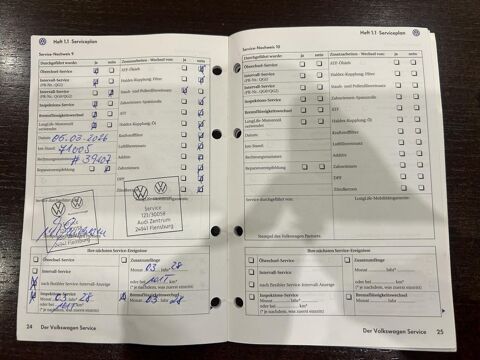 Heft 1.1 Serviceplan
Service-Nachweis 9
Durchgeführt wurde: ja nein
Zusatzarbeiten - Wechsel von: ja nein
Ölwechsel-Service
Intervall-Service
(PR-Nr.: QG2)
Intervall-Service
Inspektions-Service
Bremsflüssigkeitswechsel
LongLife-Motorenöl
verwendet
Datum: 05.03.2026
km-Stand: 71005
Rechnungsnummer: # 39407
Reparaturempfehlung
ATF-Ölsieb
Haldex-Kupplung: Filter
Staub- und Pollenfiltereinsatz
Zahnriemen-Spannrolle
ATF
Haldex-Kupplung: Öl
Kraftstofffilter
Luftfiltereinsatz
Additiv
Zahnriemen
DPF
Zündkerzen
24941 Flensburg
Service
Audi Zentrum
24941 Flensburg
Ihre nächsten Service-Ereignisse
Ölwechsel-Service
Intervall-Service
nach flexibler Service-Intervall-Anzeige
Inspektions-Service
Monat 03 Jahr 28
oder bei km*
(* je nachdem, was zuerst eintritt)
Zusatzumfänge
Monat 03 Jahr 28
oder bei km*
(* je nachdem, was zuerst eintritt)
Bremsflüssigkeitswechsel
Monat 03 Jahr 28
24 Der Volkswagen Service
Heft 1.1 Serviceplan
Service-Nachweis 10
Durchgeführt wurde: ja nein
Zusatzarbeiten - Wechsel von: ja nein
Ölwechsel-Service
Intervall-Service
(PR-Nr.: QG2)
Intervall-Service
Inspektions-Service
Bremsflüssigkeitswechsel
LongLife-Motorenöl
verwendet
Datum:
km-Stand:
Rechnungsnummer:
Reparaturempfehlung
ATF-Ölsieb
Haldex-Kupplung: Filter
Staub- und Pollenfiltereinsatz
Zahnriemen-Spannrolle
ATF
Haldex-Kupplung: Öl
Kraftstofffilter
Luftfiltereinsatz
Additiv
Zahnriemen
DPF
Zündkerzen
Service durchgeführt von:
LongLife-Mobilitätsgarantie:
Stempel des Volkswagen Partners
Ihre nächsten Service-Ereignisse
Ölwechsel-Service
Intervall-Service
nach flexibler Service-Intervall-Anzeige
Inspektions-Service
Monat Jahr
oder bei km*
(* je nachdem, was zuerst eintritt)
Zusatzumfänge
Monat Jahr
oder bei km*
(* je nachdem, was zuerst eintritt)
Bremsflüssigkeitswechsel
Monat Jahr
Der Volkswagen Service 25